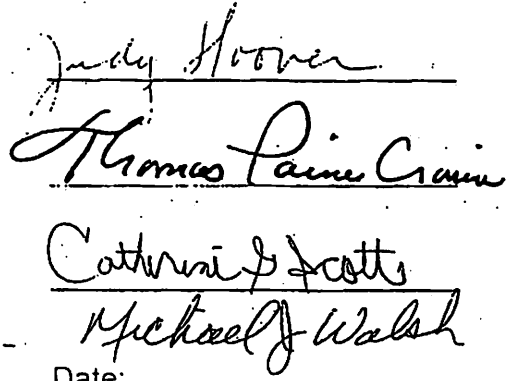 Judy Hoover
Thomas Paine Cronin
Catherine G Scott
Michael J Walsh
Date: